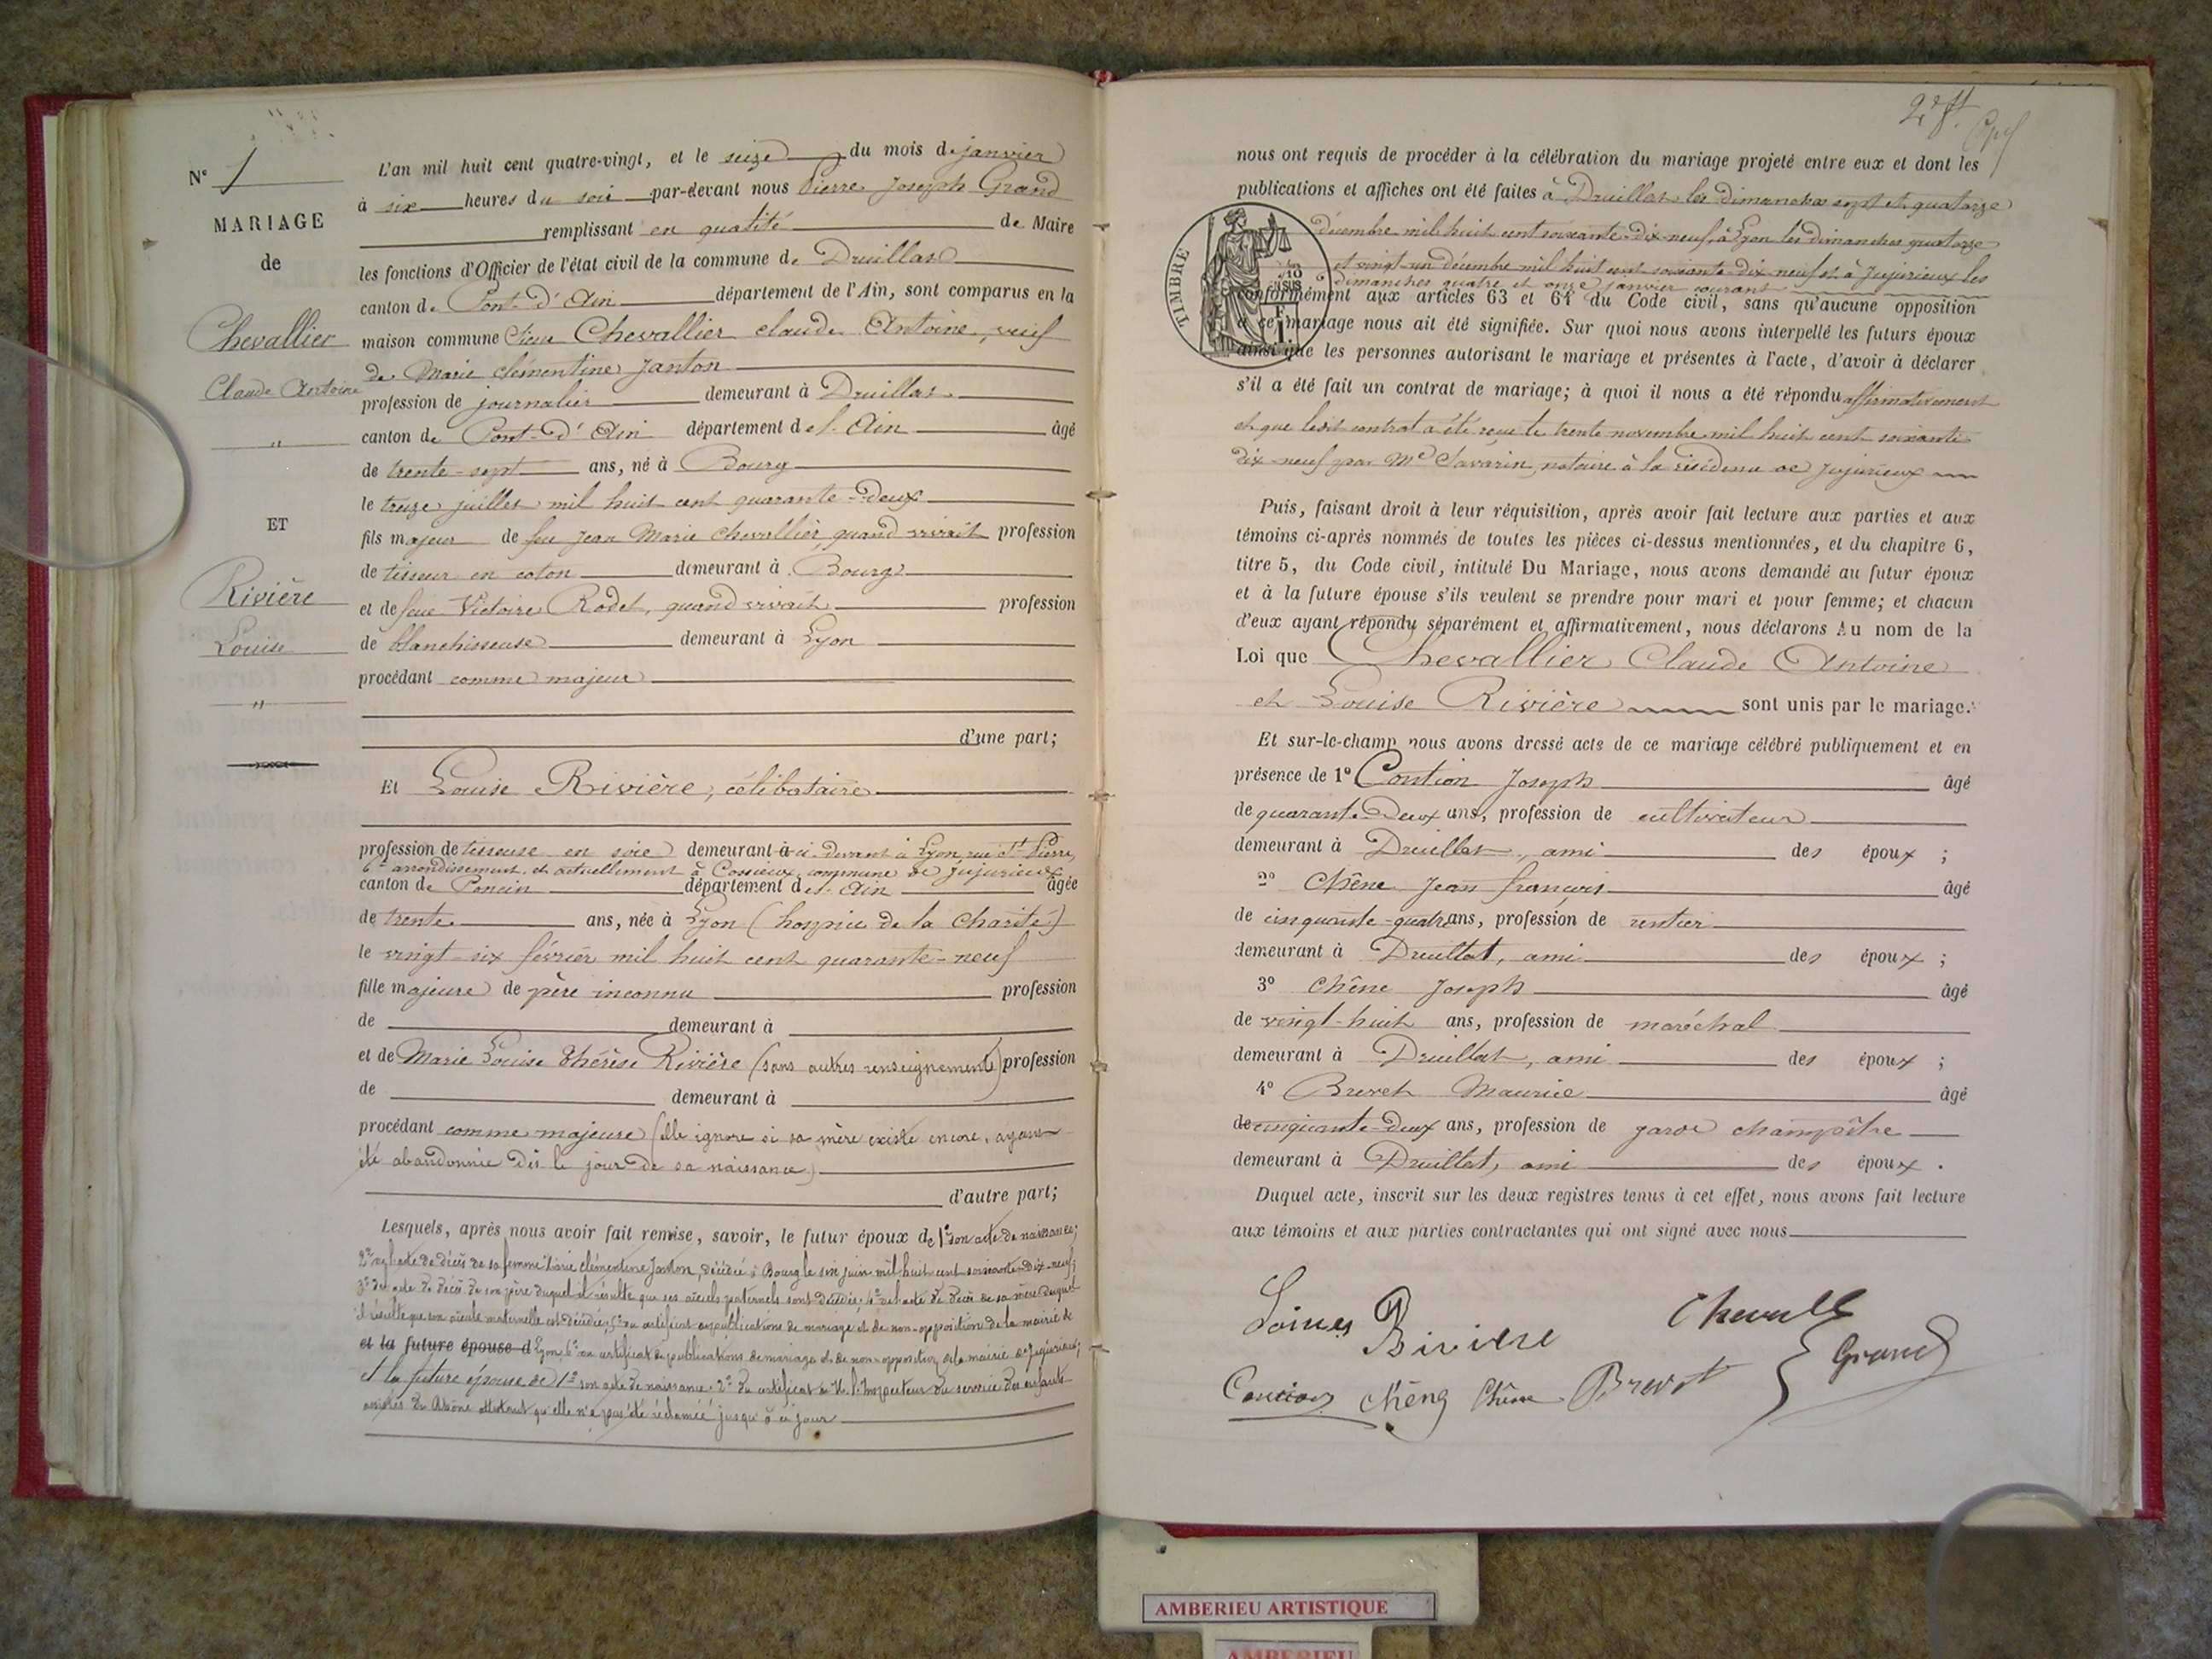 N° 1
MARIAGE
de
Chevallier
Claude Antoine
"
ET
Rivière
Louise
"
L'an mil huit cent quatre-vingt, et le seize du mois de janvier
à six heures du soir par-devant nous Pierre Joseph Grand
remplissant en qualité de Maire
les fonctions d'Officier de l'état civil de la commune de Druillat
canton de Pont-d'Ain département de l'Ain, sont comparus en la
maison commune Sieur Chevallier claude Antoine, veuf
de Marie clémentine Janton
profession de journalier demeurant à Druillat
canton de Pont-d'Ain département de l'Ain âgé
de trente-sept ans, né à Bourg
le treize juillet mil huit cent quarante-deux
fils majeur de feu Jean Marie Chevallier, quand vivait profession
de tisseur en coton demeurant à Bourg
et de feue Victoire Rodet, quand vivait profession
de blanchisseuse demeurant à Lyon
procédant comme majeur
d'une part;
Et Louise Rivière, célibataire
profession de tisseuse en soie demeurant à ci-devant à Lyon, rue St Pierre,
6e arrondissement, et actuellement à Cossieux, commune de Jujurieux
canton de Poncin département de l'Ain âgée
de trente ans, née à Lyon (hospice de la Charité)
le vingt-six février mil huit cent quarante-neuf
fille majeure de père inconnu profession
de demeurant à
et de Marie Louise Thérèse Rivière (sans autres renseignements) profession
de demeurant à
procédant comme majeure (elle ignore si sa mère existe encore, ayant
été abandonnée dès le jour de sa naissance)
d'autre part;
Lesquels, après nous avoir fait remise, savoir, le futur époux de 1° son acte de naissance;
2° de l'acte de décès de sa femme Marie clémentine Janton, décédée à Bourg le six juin mil huit cent soixante-dix-neuf;
3° de l'acte de décès de son père duquel il résulte que ses aïeuls paternels sont décédés; 4° de l'acte de décès de sa mère duquel
il résulte que son aïeule maternelle est décédée; 5° du certificat de publications de mariage et de non-opposition de la mairie de
et la future épouse d Lyon; 6° du certificat de publications de mariage et de non-opposition de la mairie de Jujurieux;
et la future épouse de 1° son acte de naissance; 2° du certificat de M. l'Inspecteur du service des enfants
assistés du Rhône attestant qu'elle n'a pas été réclamée jusqu'à ce jour
2e ft
nous ont requis de procéder à la célébration du mariage projeté entre eux et dont les
publications et affiches ont été faites à Druillat les dimanches sept et quatorze
décembre mil huit cent soixante-dix-neuf, à Lyon les dimanches quatorze
et vingt-un décembre mil huit cent soixante-dix-neuf et à Jujurieux les
dimanches quatre et onze janvier courant
TIMBRE
conformément aux articles 63 et 64 du Code civil, sans qu'aucune opposition
à ce mariage nous ait été signifiée. Sur quoi nous avons interpellé les futurs époux
ainsi que les personnes autorisant le mariage et présentes à l'acte, d'avoir à déclarer
s'il a été fait un contrat de mariage; à quoi il nous a été répondu affirmativement
et que ledit contrat a été reçu le trente novembre mil huit cent soixante
dix-neuf par Me Savarin, notaire à la résidence de Jujurieux
Puis, faisant droit à leur réquisition, après avoir fait lecture aux parties et aux
témoins ci-après nommés de toutes les pièces ci-dessus mentionnées, et du chapitre 6,
titre 5, du Code civil, intitulé Du Mariage, nous avons demandé au futur époux
et à la future épouse s'ils veulent se prendre pour mari et pour femme; et chacun
d'eux ayant répondu séparément et affirmativement, nous déclarons Au nom de la
Loi que Chevallier Claude Antoine
et Louise Rivière sont unis par le mariage.
Et sur-le-champ nous avons dressé acte de ce mariage célébré publiquement et en
présence de 1° Joseph âgé
de quarante-deux ans, profession de cultivateur
demeurant à Druillat, ami des époux ;
2° Chêne Jean françois âgé
de cinquante-quatre ans, profession de rentier
demeurant à Druillat, ami des époux ;
3° Chêne Joseph âgé
de vingt-huit ans, profession de maréchal
demeurant à Druillat, ami des époux ;
4° Brevet Maurice âgé
de cinquante-deux ans, profession de garde champêtre
demeurant à Druillat, ami des époux.
Duquel acte, inscrit sur les deux registres tenus à cet effet, nous avons fait lecture
aux témoins et aux parties contractantes qui ont signé avec nous
Rivière
Grand
Chêne Brevet
AMBERIEU ARTISTIQUE
AMBERIEU